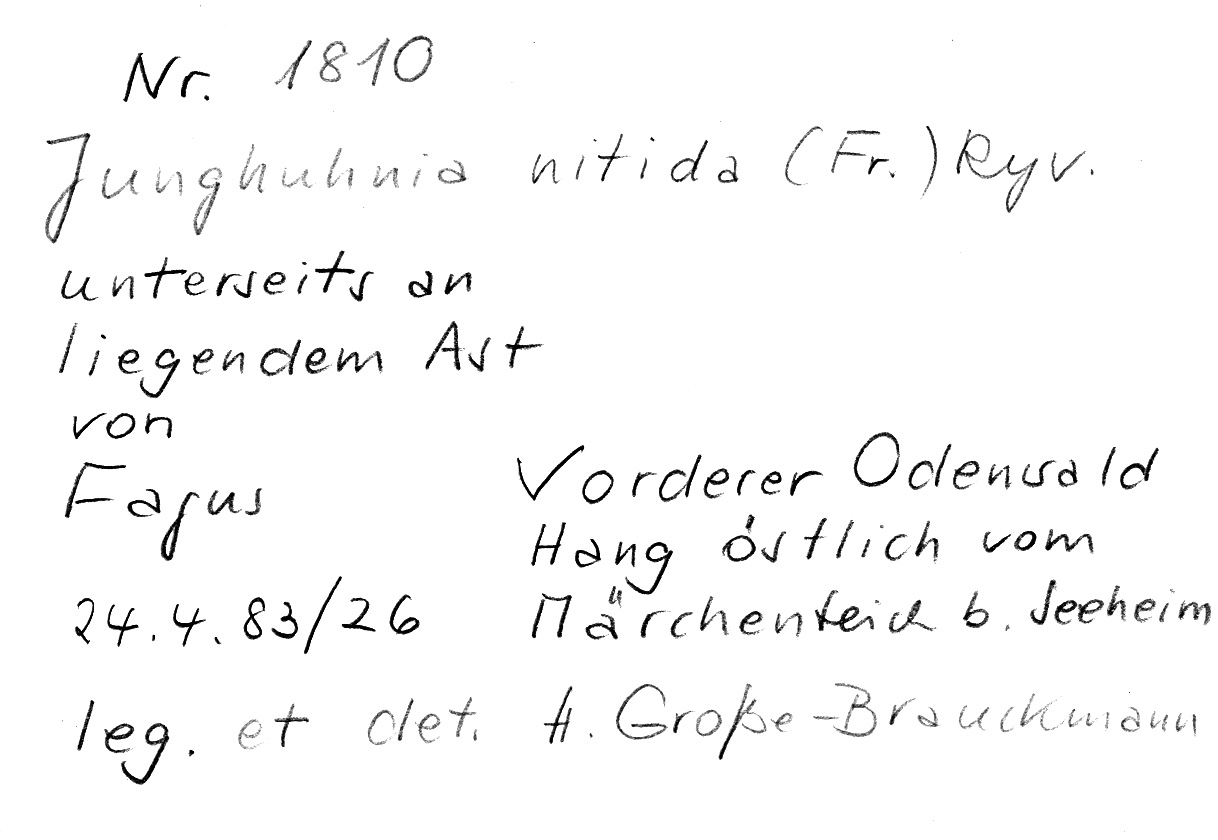 Nr. 1810
Junghuhnia nitida (Fr.) Ryv.
unterseits an
liegendem Ast
von
Fagus
Vorderer Odenwald
Hang östlich vom
Märchenteich b. Seeheim
24.4.83/26
leg. et det. H. Große-Brauckmann